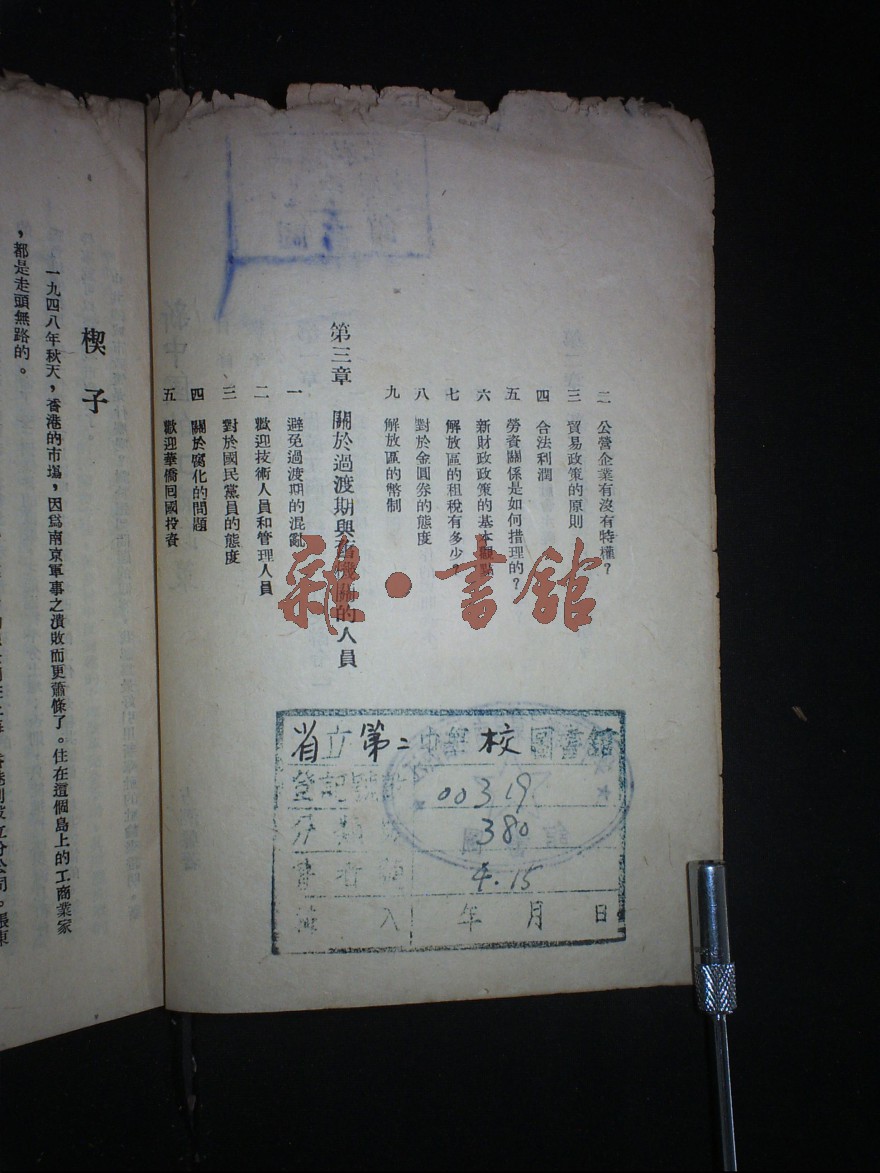 二 公營企業有沒有特權？
三 貿易政策的原則
四 合法利潤
五 勞資關係是如何措理的？
六 新財政政策的基本觀點
七 解放區的租稅有多少？
八 對於金圓券的態度
九 解放區的幣制
第三章 關於過渡期與舊機關的人員
一 避免過渡期的混亂
二 歡迎技術人員和管理人員
三 對於國民黨員的態度
四 關於腐化的問題
五 歡迎華僑回國投資
雜·書館
省立第二中學校圖書館
登記號數 00319
380
著者 4.15
入 年 月 日
楔子
一九四八年秋天，香港的市場，因爲南京軍事之潰敗而更蕭條了。住在這個島上的工商業家
，都是走頭無路的。